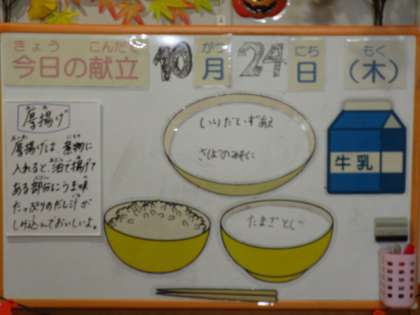 きょう こんだて がつ にち もく
今日の献立 10月24日(木)
厚揚げ
厚揚げは 煮物に
入れると、油で揚げて
ある部分にうま味
たっぷりのだし汁が
しみ込んでおいしいよ。
さばのみそに
牛乳